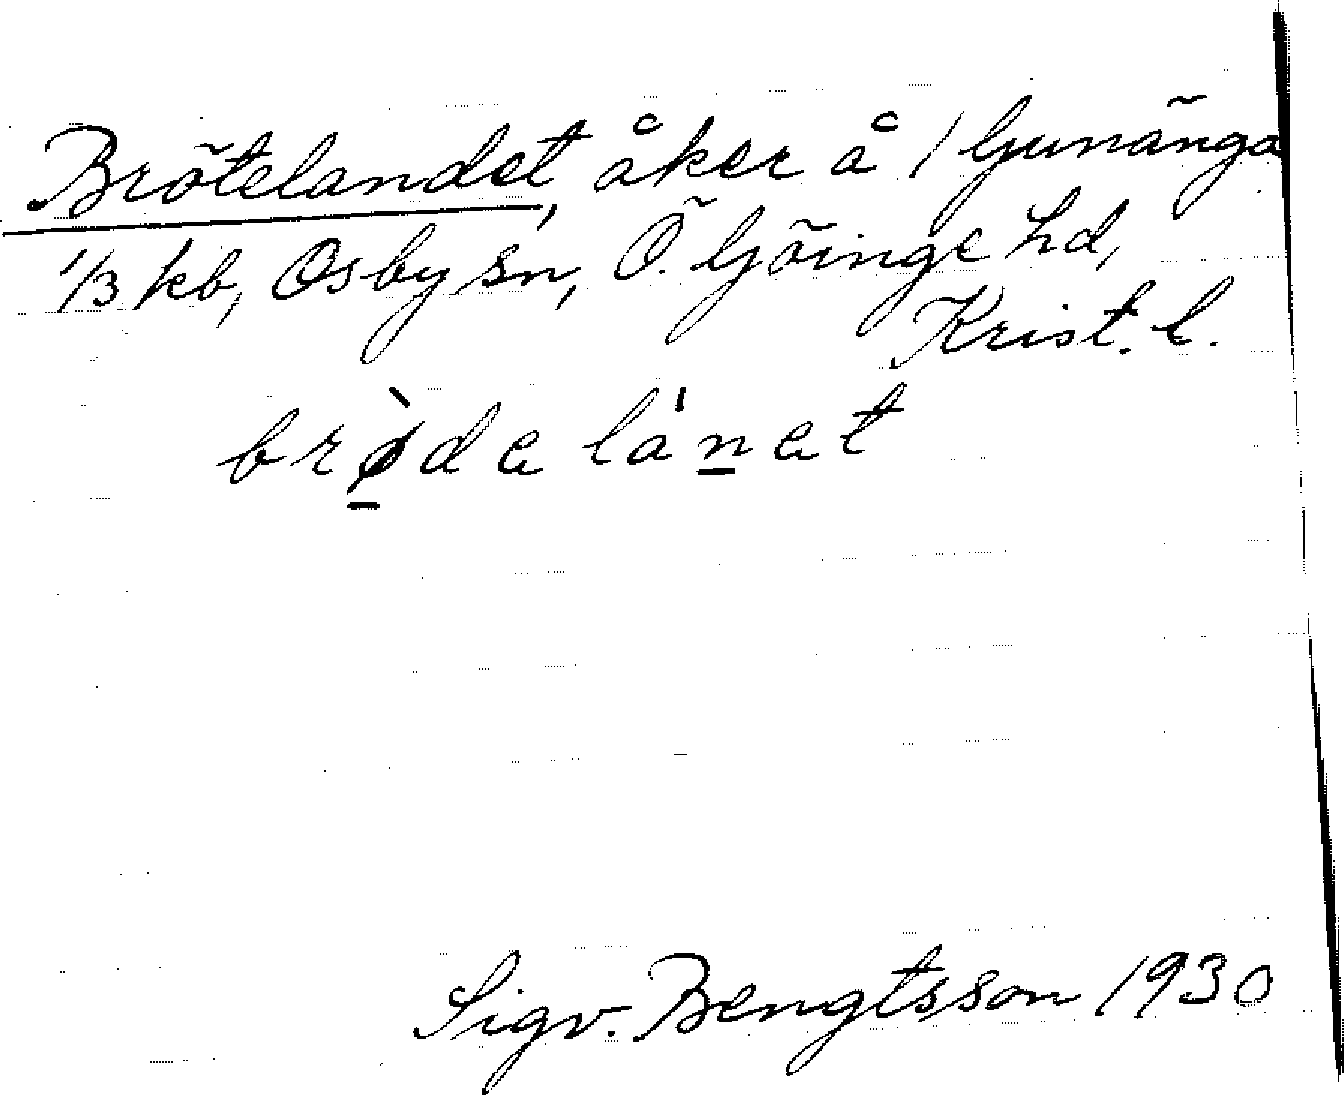 Brötelandet, åker å 1 Gunänga
1/3 kb, Osby sn, Ö. Göinge hd,
Krist. l.
brø̠̀de lán̠et
Sigv. Bengtsson 1930